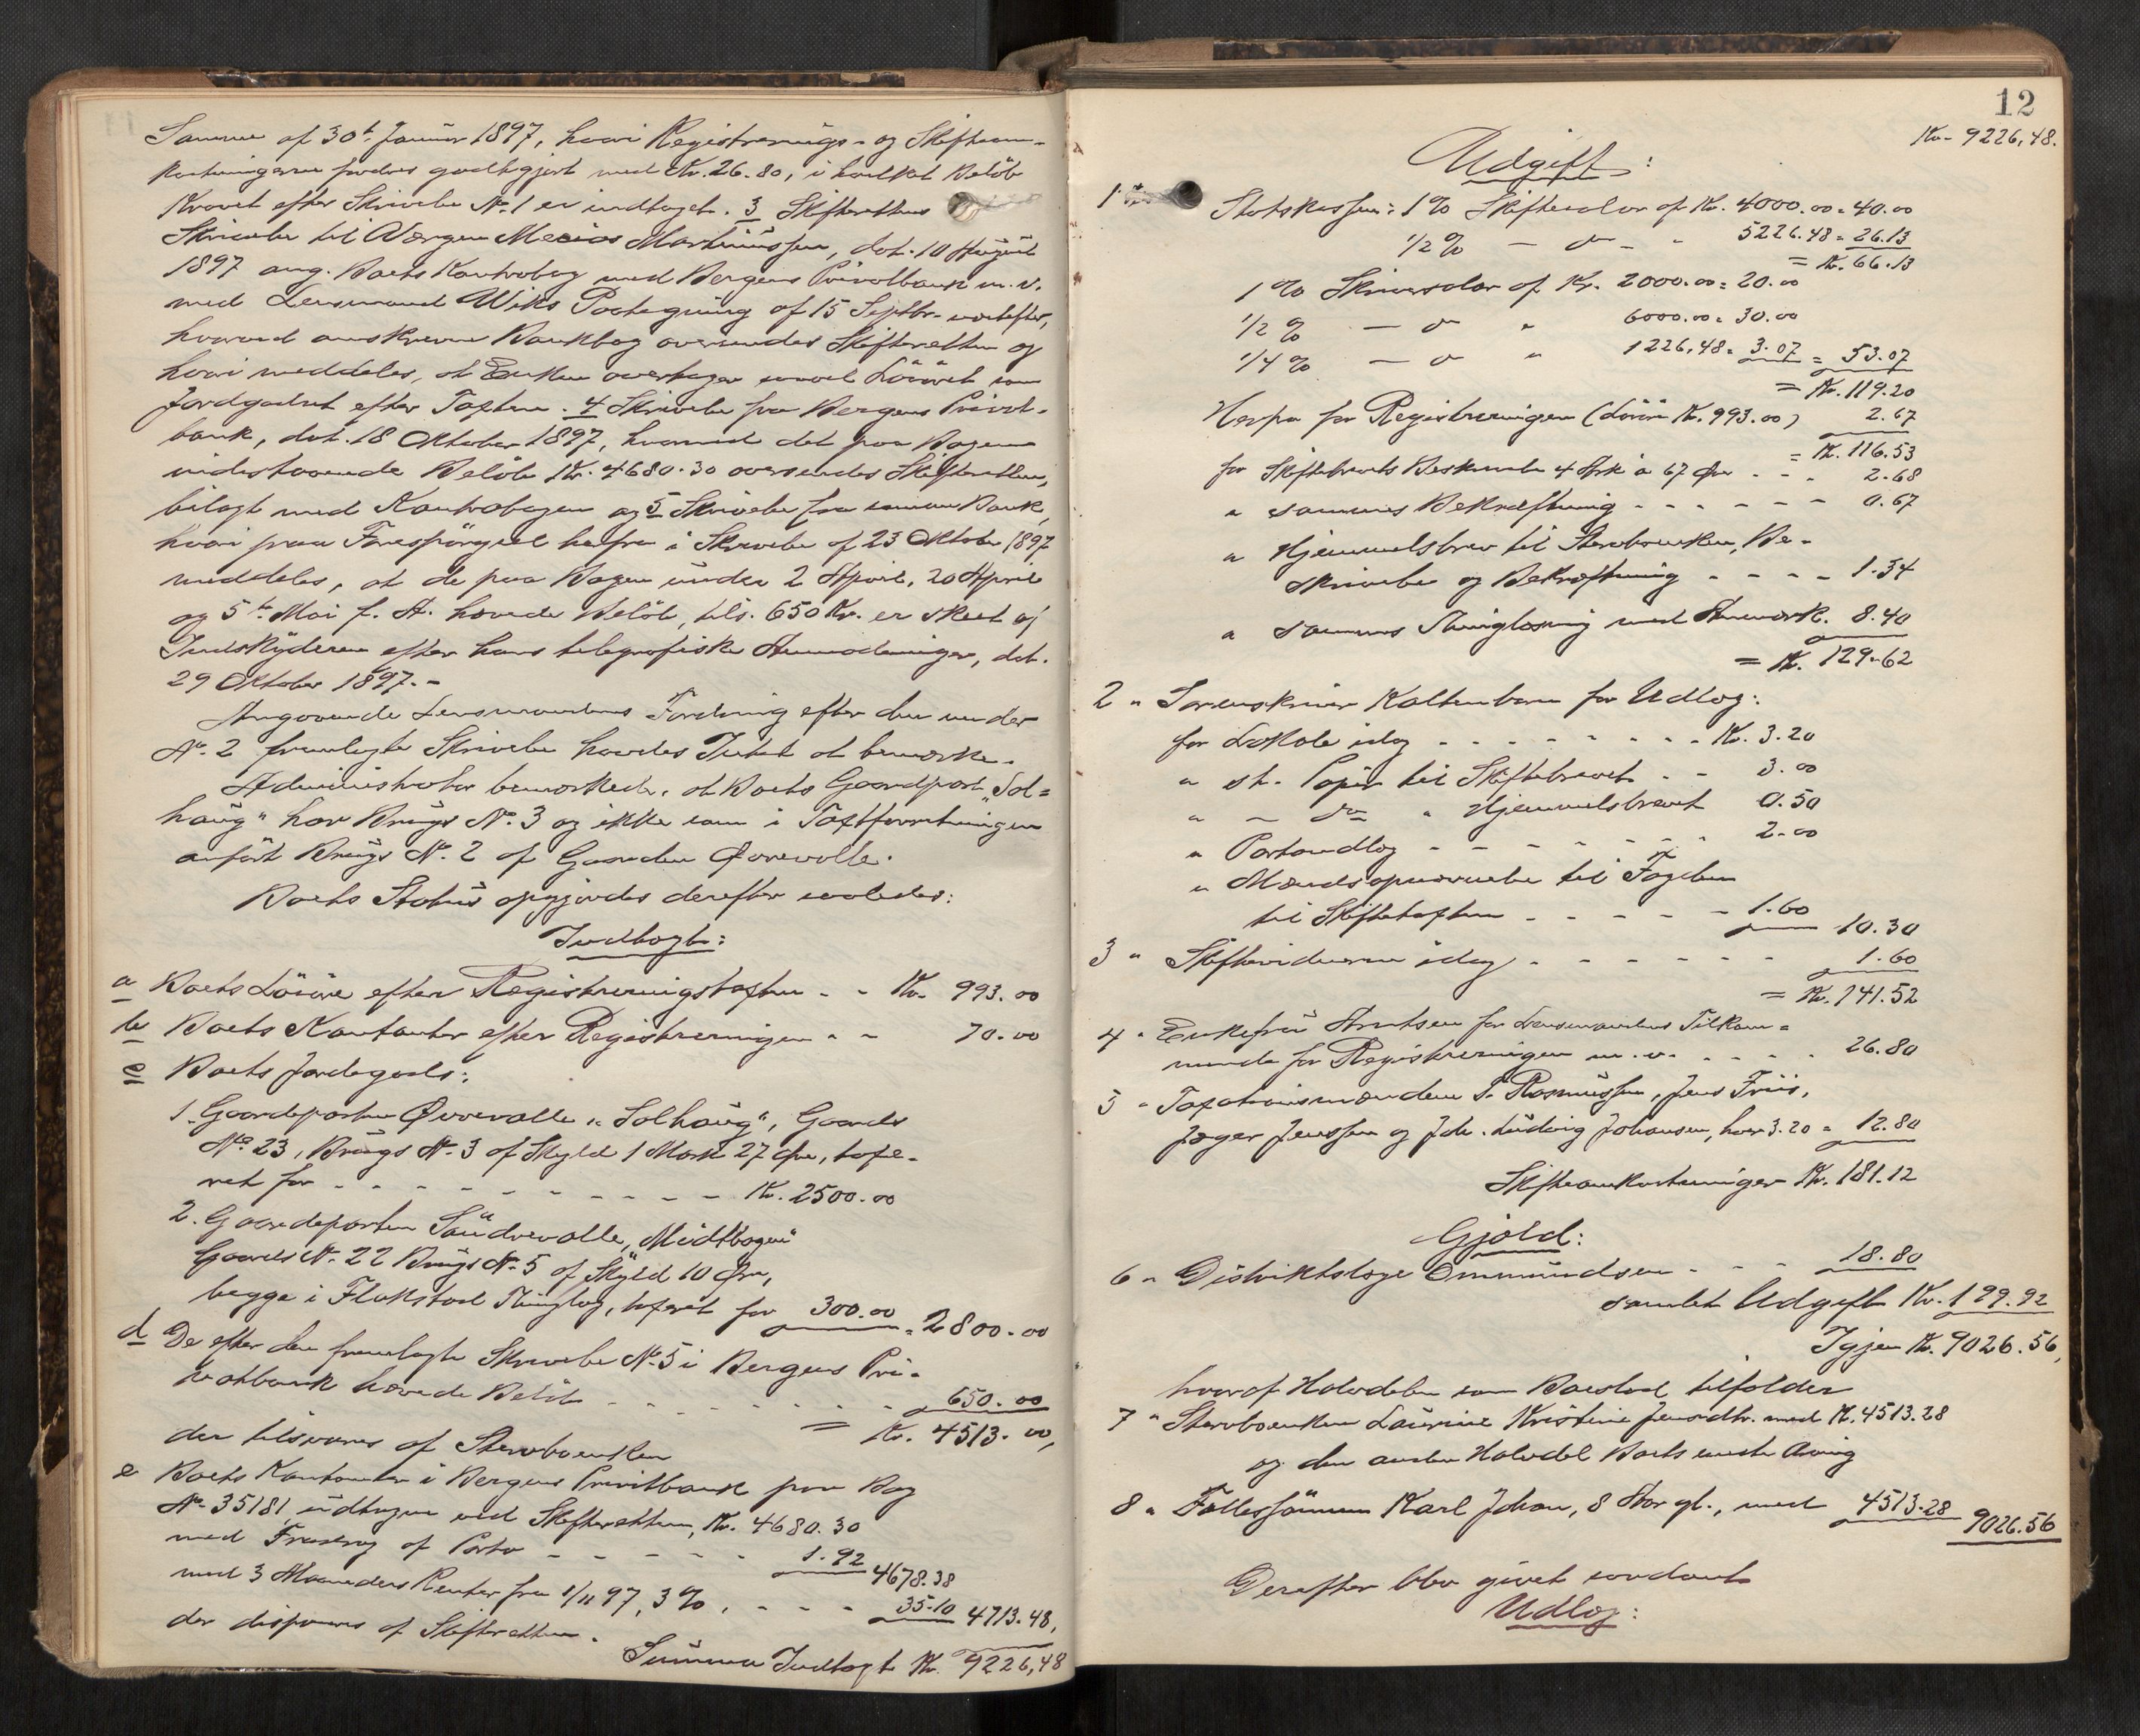 Samme af 30te Januar 1897, hvori Registrerings- og Skifteom-
kostningerne fordres godtgjort med Kr. 26.80, i hvilket Beløb
Kravet efter Skrivelse No. 1 er indtaget. 3 Skifterettens
Skrivelse til Værgen Martinussen, dat. 10 August
1897 ang. Boets Kontrabog med Bergens Privatbank m. v.
med Lensmand Wiks Paategning af 15 Septbr.
hvorved omskrevne Bankbog oversendes Skifteretten og
hvori meddeles, at Enken overtager saavel Løsøret som
Jordgodset efter Taxten. 4 Skrivelse fra Bergens Privat-
bank, dat. 18 Oktober 1897, hvormed det paa Bogen
indestaaende Beløb Kr. 4680.30 oversendes Skifteretten,
bilagt med Kontrabogen og 5 Skrivelse fra samme Bank,
hvori paa Forespørgsel herfra i Skrivelse af 23 Oktober 1897
meddeles, at de paa Bogen under 2 April, 20 April
og 5te Mai f. A. hævede Beløb, tils. 650 Kr. er skeet af
Indskyderen efter hans telegrafiske Anmodninger, dat.
29 Oktober 1897.-
Angaaende Lensmandens Fordring efter den under
No. 2 fremlagte Skrivelse havdes Intet at bemærke.
Administrator bemærkede, at Boets Gaardpart "Sol=
haug" har Brugs No. 3 og ikke som i Taxtforretningen
anført Brugs No. 2 af Gaarden Ørevolle.
Boets Status opgjordes derefter saaledes:
Indtægt:
a Boets Løsøre efter Registreringstaxten - - Kr. 993.00
b Boets Kontanter efter Registreringen - - 70.00
c Boets Jordegods:
1. Gaardeparten Ørevolle "Solhaug", Gaards
No. 23, Brugs No. 3 af Skyld 1 Mark 27 Øre, taxe-
ret for - - - - - - - - - - Kr. 2500.00
2. Gaardeparten Søndrevolle, "Midtbogen"
Gaards No. 22 Brugs No. 5 af Skyld 10 Øre,
begge i Flakstad Thinglag, taxeret for 300.00 = 2800.00
d De efter den fremlagte Skrivelse No. 5 i Bergens Pri-
vatbank hævede Beløb - - - - - - - - 650.00
= Kr. 4513.00,
der tilsvares af Stervboenken
e Boets Kontanter i Bergens Privatbank paa Bog
No. 35181, udtagne ved Skifteretten, Kr. 4680.30
med Fradrag af Porto - - - - - 1.92 4678.38
med 3 Maaneders Renter fra 1/11 97, 3%, - - - 35.10 4713.48,
der disponeres af Skifteretten.
Summa Indtægt Kr. 9226,48
12
Kr. 9226,48.
Udgift:
1. Statskassen: 1% Skifteslør af Kr. 4000.00 = 40.00
1/2% — do — " 5226.48 = 26.13
= Kr. 66.13
1% Skriverslør af Kr. 2000.00 = 20.00
1/2% — do " 6000.00 = 30.00
1/4% — do " 1226,48 = 3.07 = 53.07
= Kr. 119.20
Herpaa for Registreringen (Løsøre Kr. 993.00) 2.67
= Kr. 116.53
for Skiftebrevets Beskrivelse 4 Ark à 67 Øre - - - 2.68
" sammes Bekræftning - - - - - - 0.67
" Hjemmelsbrev til Stervboenken, Be-
skrivelse og Bekræftning - - - - 1.34
" sammes Thinglæsning med Anmærk. 8.40
= Kr. 129.62
2 " Sorenskriver Kaltenborn for Udlæg:
for Lokale idag - - - - - - - - - Kr. 3.20
" st. Papir til Skiftebrevet - - 3.00
" — do " Hjemmelsbrevet 0.50
" Portoudlæg - - - - - - - 2.00
" Mandsopnævnelse til Fogden
til Skiftetaxten - - - - - 1.60 10.30
3 " Skiftevidnerne idag - - - - - - 1.60
= Kr. 141.52
4 " Enkefru Arntsen for Lensmandens Tilkom=
mende for Registreringen m. v. - - - - 26.80
5 " Taxationsmændene P. Rasmussen, Jens Friis,
Jæger Jenssen og Joh. Ludvig Johansen, hver 3.20 = 12.80
Skifteomkostninger Kr. 181.12
Gjæld:
6 " Distriktslæge Ommundsen - - - 18.80
samlet Udgift Kr. 199.92
Igjen Kr. 9026.56,
hvoraf Halvdelen som Boeslod tilfalder
7 " Stervboenken Laurine Kristine Jensdtr. med Kr. 4513.28
og den anden Halvdel Boets eneste Arving
8 " Fællessønnen Karl Johan, 8 Aar gl., med 4513.28 9026.56
Derefter blev givet saadant
Udlæg: